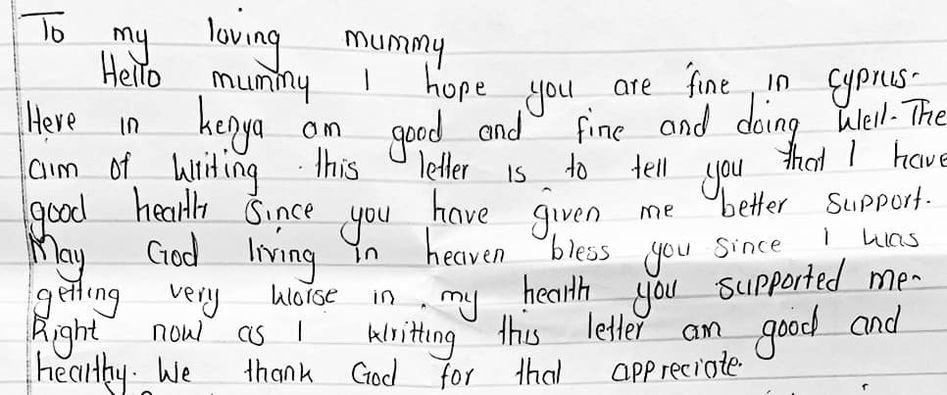 To my loving mummy
Hello mummy I hope you are fine in Cyprus.
Here in kenya am good and fine and doing well. The
aim of writing this letter is to tell you that I have
good health since you have given me better support.
May God living in heaven bless you since I was
getting very worse in my health you supported me.
Right now as I writting this letter am good and
healthy. We thank God for that appreciate.